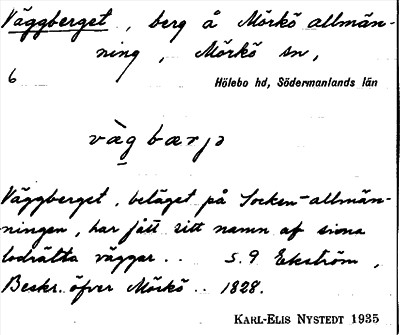 Väggberget, berg å Mörkö allmän-
ning, Mörkö sn,
6
Hölebo hd, Södermanlands län
vàg bærjə
Väggberget, beläget på Socken-allmän-
ningen, har fått sitt namn af sina
lodrätta väggar.. S. 9 Ekström,
Beskr. öfver Mörkö.. 1828.
KARL-ELIS NYSTEDT 1935